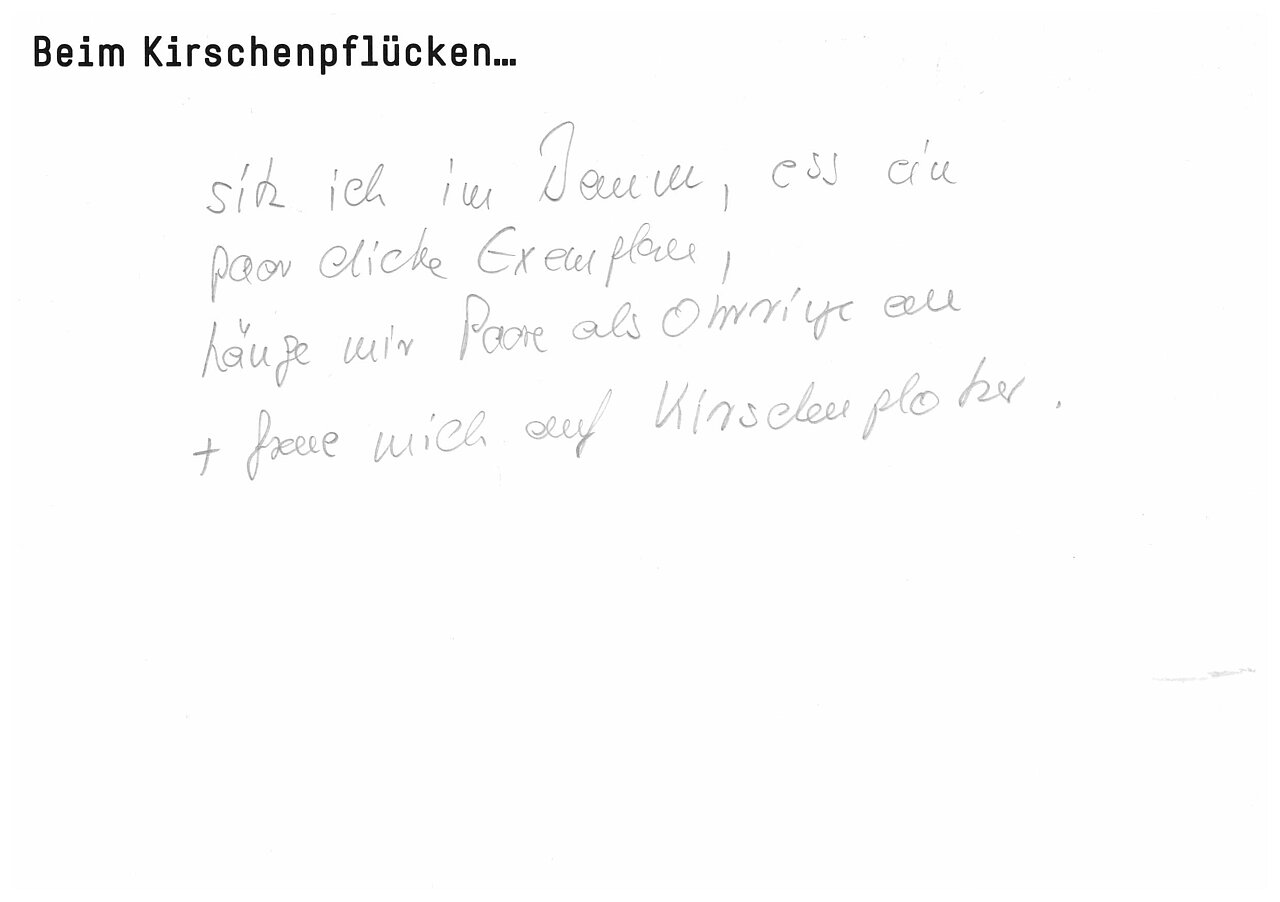 Beim Kirschenpflücken…
sitz ich im Baum, ess ein
paar dicke Exemplare,
hänge mir Paare als Ohrringe an
+ freue mich auf Kirschenplotzer.